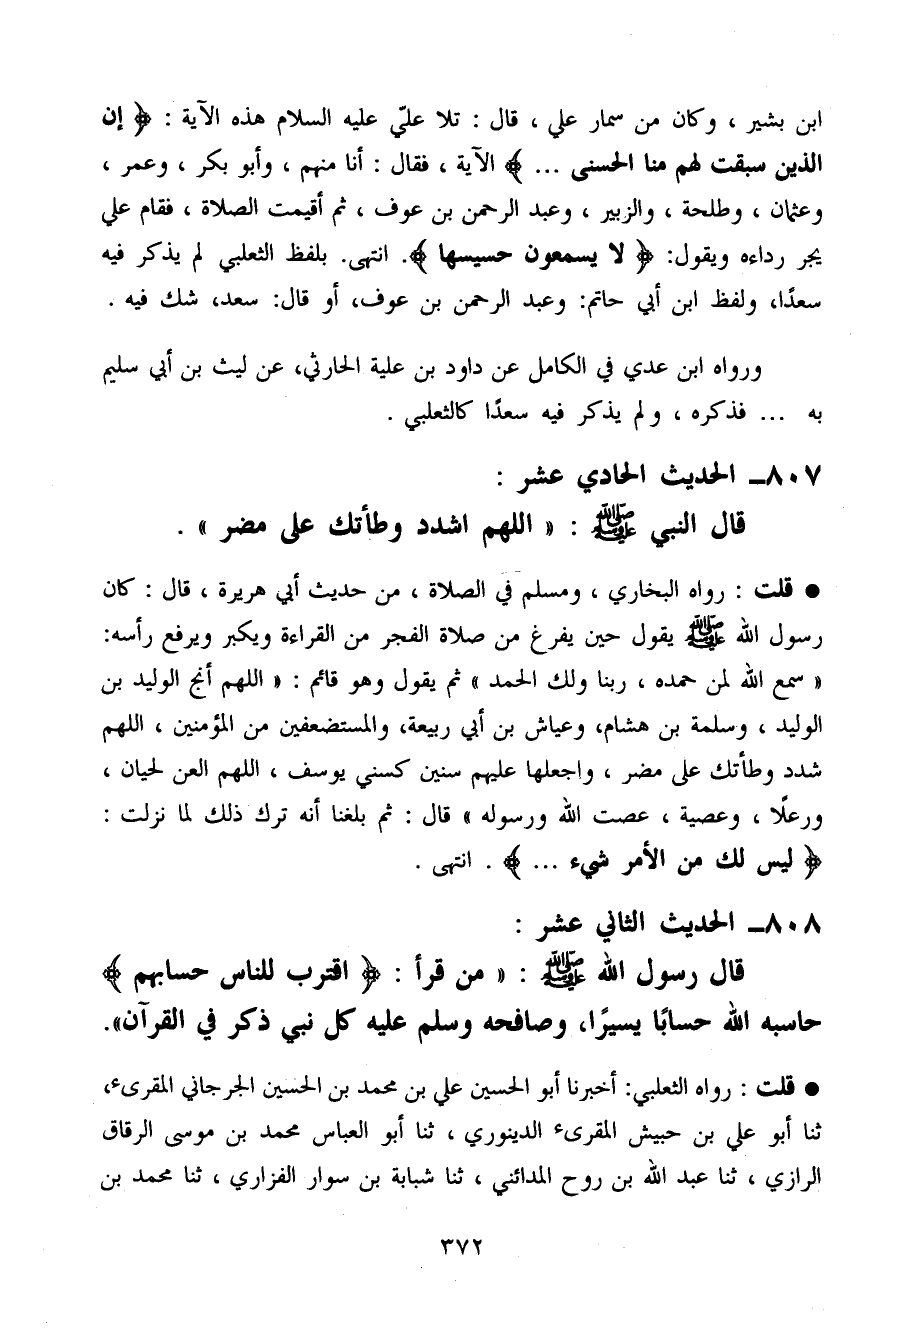 ابن بشير ، وكان من سمار علي ، قال : تلا عليّ عليه السلام هذه الآية : ﴿ إن
الذين سبقت لهم منا الحسنى ... ﴾ الآية ، فقال : أنا منهم ، وأبو بكر ، وعمر ،
وعثمان ، وطلحة ، والزبير ، وعبد الرحمن بن عوف ، ثم أقيمت الصلاة ، فقام علي
يجر رداءه ويقول: ﴿ لا يسمعون حسيسها ﴾. انتهى. بلفظ الثعلبي لم يذكر فيه
سعدًا، ولفظ ابن أبي حاتم: وعبد الرحمن بن عوف، أو قال: سعد، شك فيه .
ورواه ابن عدي في الكامل عن داود بن علية الحارثي، عن ليث بن أبي سليم
به ... فذكره ، ولم يذكر فيه سعدًا كالثعلبي .
٨٠٧ـ الحديث الحادي عشر :
قال النبي ﷺ : « اللهم اشدد وطأتك على مضر » .
● قلت : رواه البخاري ، ومسلم في الصلاة ، من حديث أبي هريرة ، قال : كان
رسول الله ﷺ يقول حين يفرغ من صلاة الفجر من القراءة ويكبر ويرفع رأسه:
« سمع الله لمن حمده ، ربنا ولك الحمد » ثم يقول وهو قائم : « اللهم أنج الوليد بن
الوليد ، وسلمة بن هشام، وعياش بن أبي ربيعة، والمستضعفين من المؤمنين ، اللهم
شدد وطأتك على مضر ، واجعلها عليهم سنين كسني يوسف ، اللهم العن لحيان ،
ورعلًا ، وعصية ، عصت الله ورسوله » قال : ثم بلغنا أنه ترك ذلك لما نزلت :
﴿ ليس لك من الأمر شيء ... ﴾ . انتهى .
٨٠٨ـ الحديث الثاني عشر :
قال رسول الله ﷺ : « من قرأ : ﴿ اقترب للناس حسابهم ﴾
حاسبه الله حسابًا يسيرًا، وصافحه وسلم عليه كل نبي ذكر في القرآن».
● قلت : رواه الثعلبي: أخبرنا أبو الحسين علي بن محمد بن الحسين الجرجاني المقرىء،
ثنا أبو علي بن حبيش المقرىء الدينوري ، ثنا أبو العباس محمد بن موسى الرقاق
الرازي ، ثنا عبد الله بن روح المدائني ، ثنا شبابة بن سوار الفزاري ، ثنا محمد بن
٣٧٢